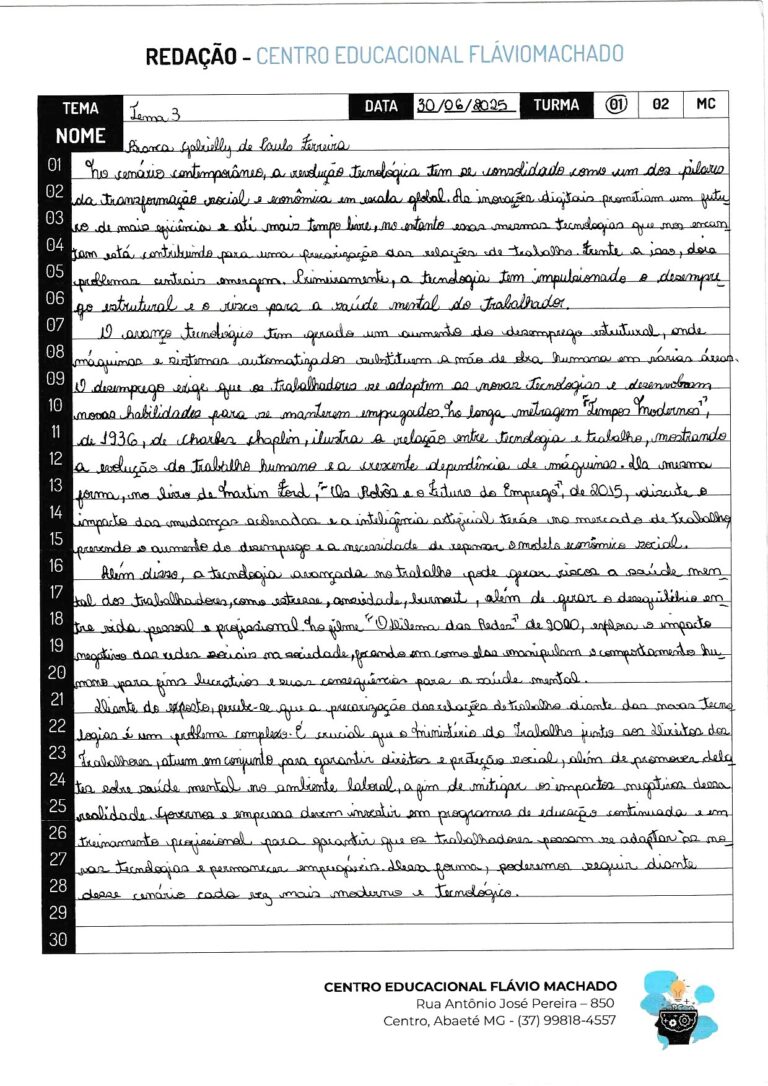 REDAÇÃO - CENTRO EDUCACIONAL FLÁVIOMACHADO
TEMA Tema 3 DATA 30/06/2025 TURMA 01 02 MC
NOME Bianca Gabrielly de Paulo Ferreira
01 No cenário contemporâneo, a revolução tecnológica tem se consolidado como um dos pilares
02 da transformação social e econômica em escala global. As inovações digitais prometiam um futu-
03 ro de mais eficiência e até mais tempo livre, no entanto essas mesmas tecnologias que nos encan-
04 tam está contribuindo para uma precarização das relações de trabalho. Frente a isso, dois
05 problemas centrais emergem. Primeiramente, a tecnologia tem impulsionado o desempre-
06 go estrutural e o risco para a saúde mental do trabalhador.
07 O avanço tecnológico tem gerado um aumento do desemprego estrutural, onde
08 máquinas e sistemas automatizados substituem a mão de obra humana em várias áreas.
09 O desemprego exige que os trabalhadores se adaptem as novas tecnologias e desenvolvam
10 novas habilidades para se manterem empregados. No longa metragem "Tempos Modernos",
11 de 1936, de Charles chaplin, ilustra a relação entre tecnologia e trabalho, mostrando
12 a evolução do trabalho humano e a crescente dependência de máquinas. Da mesma
13 forma, no livro de Martin Ford, "Os Robôs e o Futuro do Emprego", de 2015, discute o
14 impacto das mudanças aceleradas e a inteligência artificial terão no mercado de trabalho
15 prevendo o aumento do desemprego e a necessidade de repensar o modelo econômico social.
16 Além disso, a tecnologia avançada no trabalho pode gerar riscos a saúde men-
17 tal dos trabalhadores, como estresse, ansiedade, burnout, além de gerar o desequilíbrio en-
18 tre vida pessoal e profissional. No filme "O Dilema das Redes" de 2020, explora o impacto
19 negativo das redes sociais na sociedade, focando em como elas manipulam o comportamento hu-
20 mano para fins lucrativos e suas consequências para a saúde mental.
21 Diante do exposto, percebe-se que a precarização das relações de trabalho diante das novas tecno-
22 logias é um problema complexo. É crucial que o Ministério do Trabalho junto aos Direitos dos
23 Trabalhores, atuem em conjunto para garantir direitos e proteção social, além de promover deba-
24 tes sobre saúde mental no ambiente laboral, a fim de mitigar os impactos negativos dessa
25 realidade. Governos e empresas devem investir em programas de educação continuada e em
26 treinamento profissional para garantir que os trabalhadores possam se adaptar às no-
27 vas tecnologias e permanecer empregáveis. Dessa forma, poderemos seguir diante
28 desse cenário cada vez mais moderno e tecnológico.
29
30
CENTRO EDUCACIONAL FLÁVIO MACHADO
Rua Antônio José Pereira – 850
Centro, Abaeté MG - (37) 99818-4557